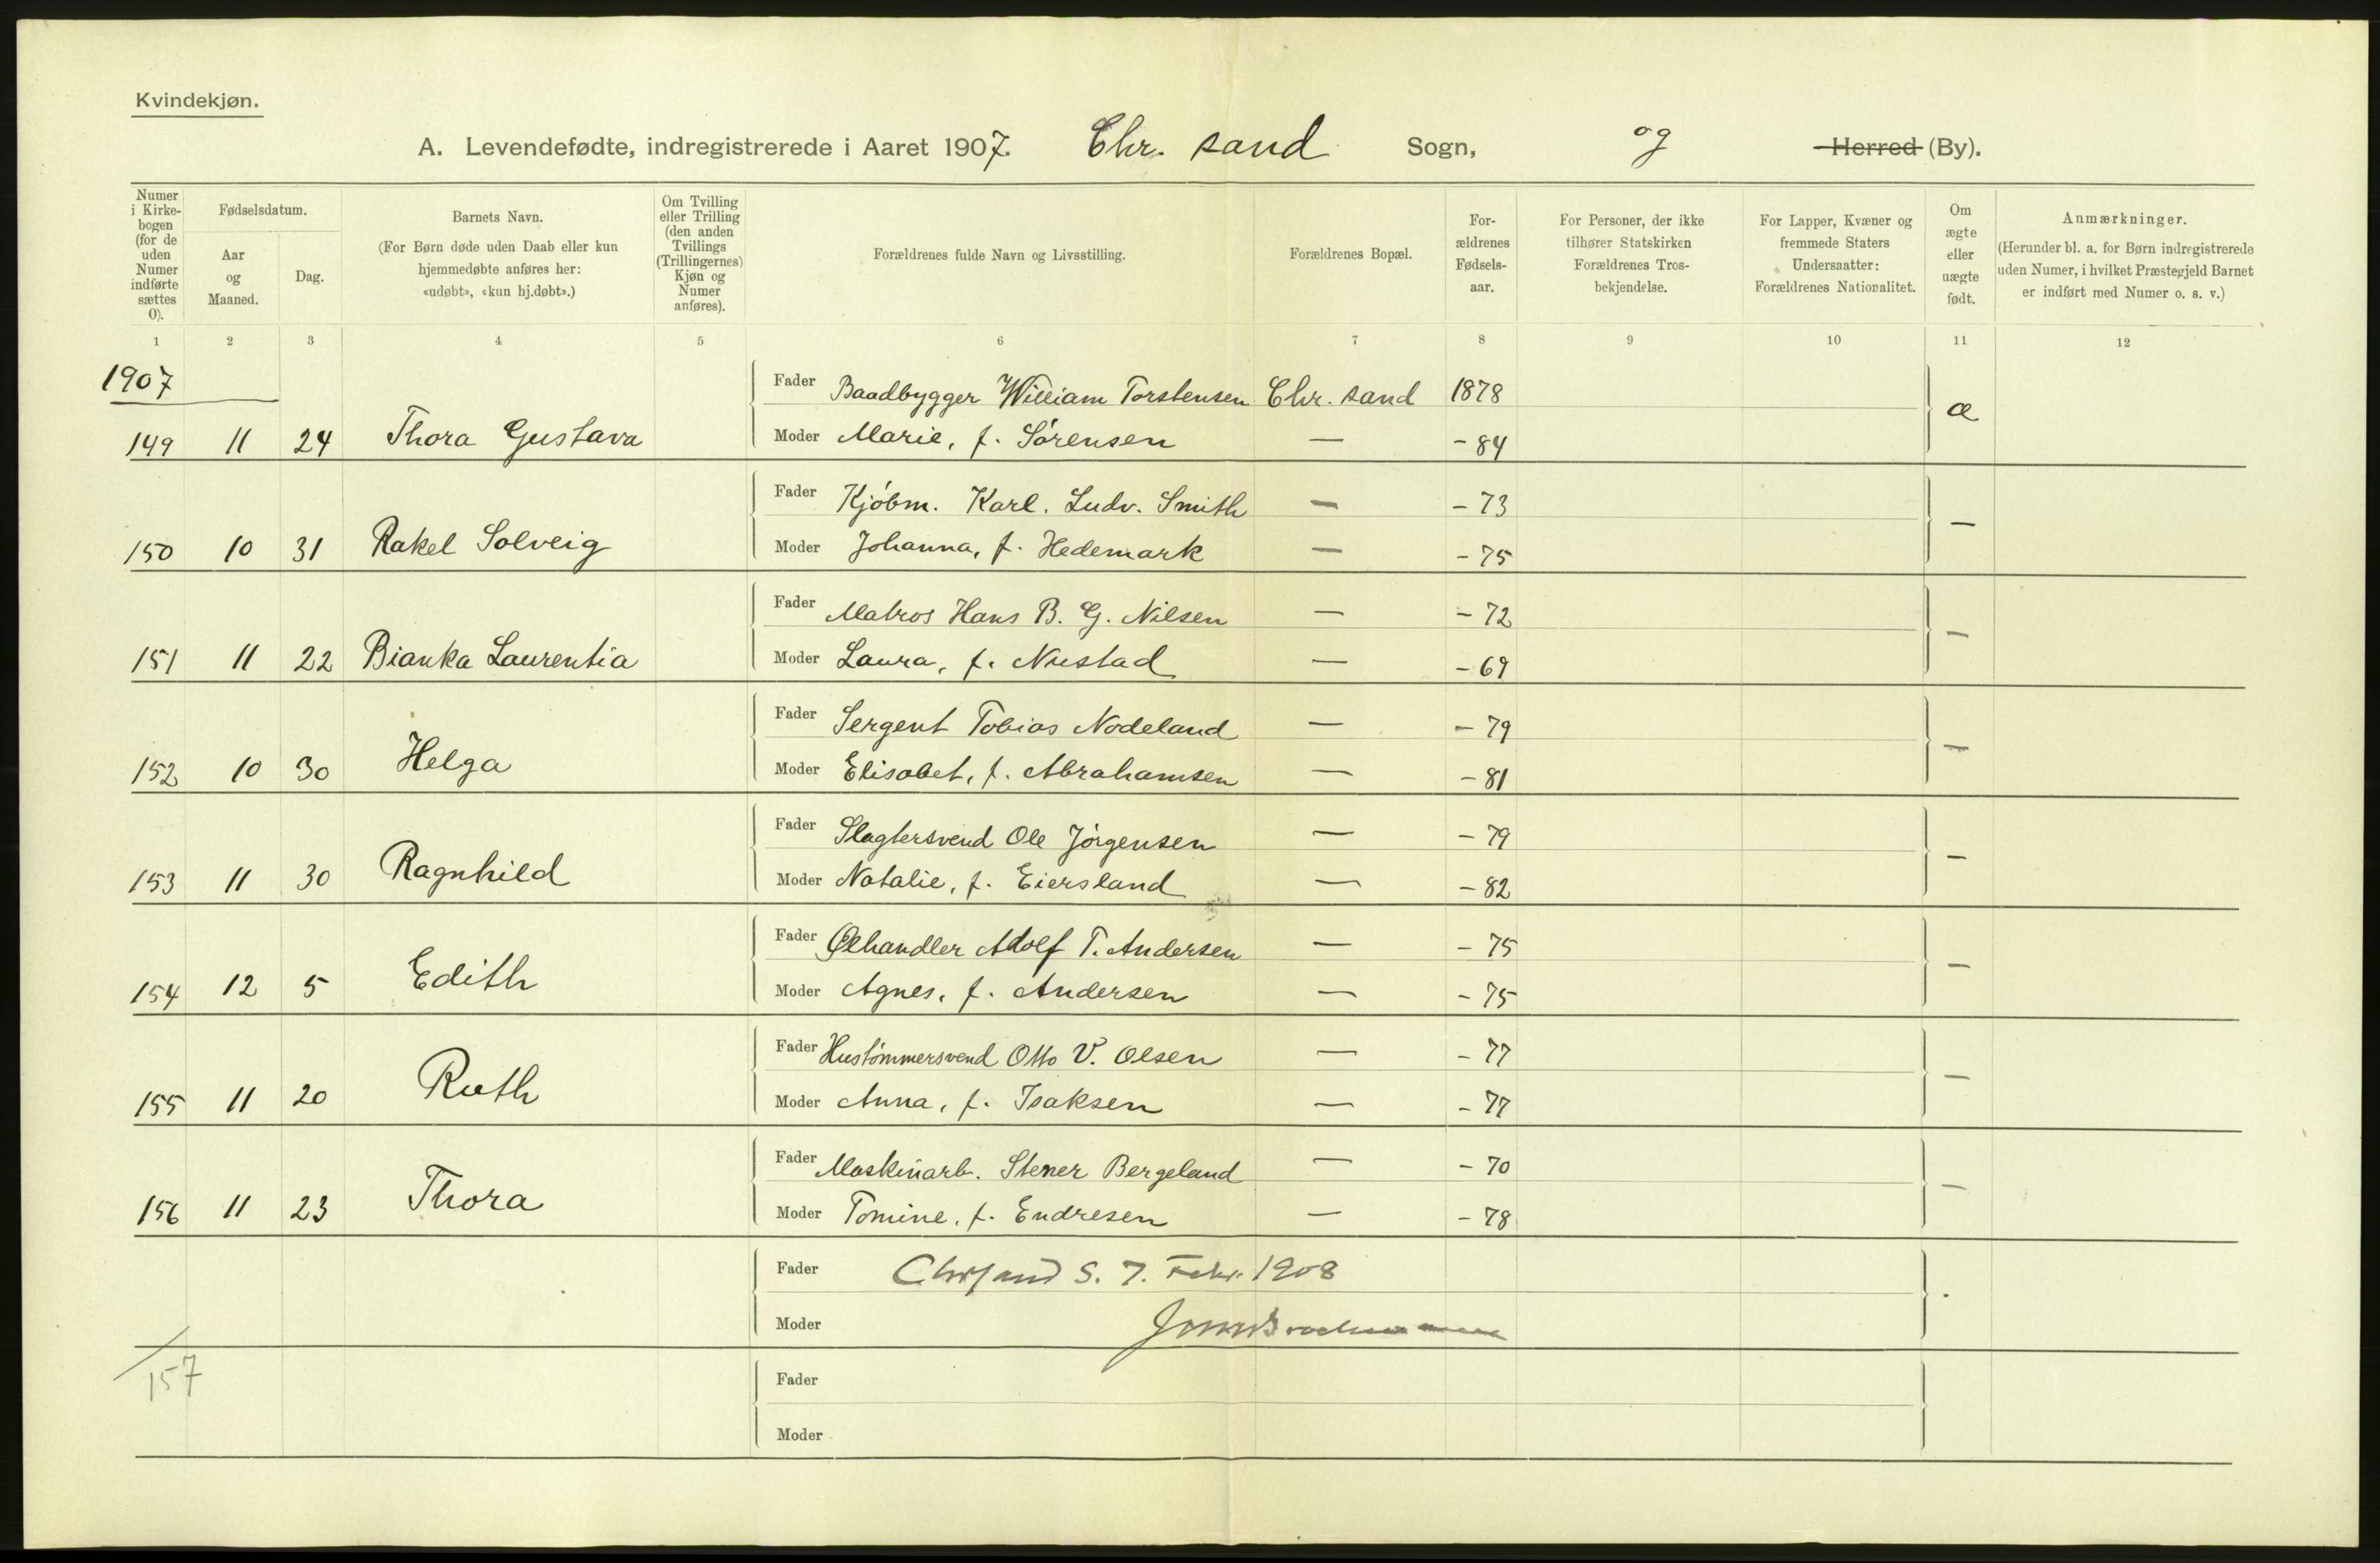 Kvindekjøn.
A. Levendefødte, indregistrerede i Aaret 1907. Chr. sand Sogn, og Herred (By).
Numer i Kirke-bogen (for de uden Numer indførte sættes 0).
Fødselsdatum.
Aar og Maaned.
Dag.
Barnets Navn.
(For Børn døde uden Daab eller kun hjemmedøbte anføres her: «udøbt», «kun hj.døbt».)
Om Tvilling eller Trilling (den anden Tvillings (Trillingernes) Kjøn og Numer anføres).
Forældrenes fulde Navn og Livsstilling.
Forældrenes Bopæl.
For-ældrenes Fødsels-aar.
For Personer, der ikke tilhører Statskirken Forældrenes Tros-bekjendelse.
For Lapper, Kvæner og fremmede Staters Undersaatter: Forældrenes Nationalitet.
Om ægte eller uægte født.
Anmærkninger.
(Herunder bl. a. for Børn indregistrerede uden Numer, i hvilket Præstegjeld Barnet er indført med Numer o. s. v.)
1 2 3 4 5 6 7 8 9 10 11 12
1907
Fader Baadbygger William Torstensen Chr. sand 1878 æ
149 11 24 Thora Gustava Moder Marie, f. Sørensen — - 84
Fader Kjøbm. Karl. Ludv. Smith — - 73 —
150 10 31 Rakel Solveig Moder Johanna, f. Hedemark — - 75
Fader Matros Hans B. G. Nilsen — - 72 —
151 11 22 Bianka Laurentia Moder Laura, f. Nustad — - 69
Fader Sergent Tobias Nodeland — - 79 —
152 10 30 Helga Moder Elisabet, f. Abrahamsen — - 81
Fader Slagtersvend Ole Jörgensen — - 79 —
153 11 30 Ragnhild Moder Natalie, f. Eiersland — - 82
Fader Ølhandler Adolf T. Andersen — - 75 —
154 12 5 Edith Moder Agnes, f. Andersen — - 75
Fader Hustömmersvend Otto V. Olsen — - 77 —
155 11 20 Ruth Moder Anna, f. Isaksen — - 77
Fader Maskinarb. Stener Bergeland — - 70 —
156 11 23 Thora Moder Tomine, f. Endresen — - 78
Fader Chrsand S. 7. Febr. 1908
Moder
157
Fader
Moder